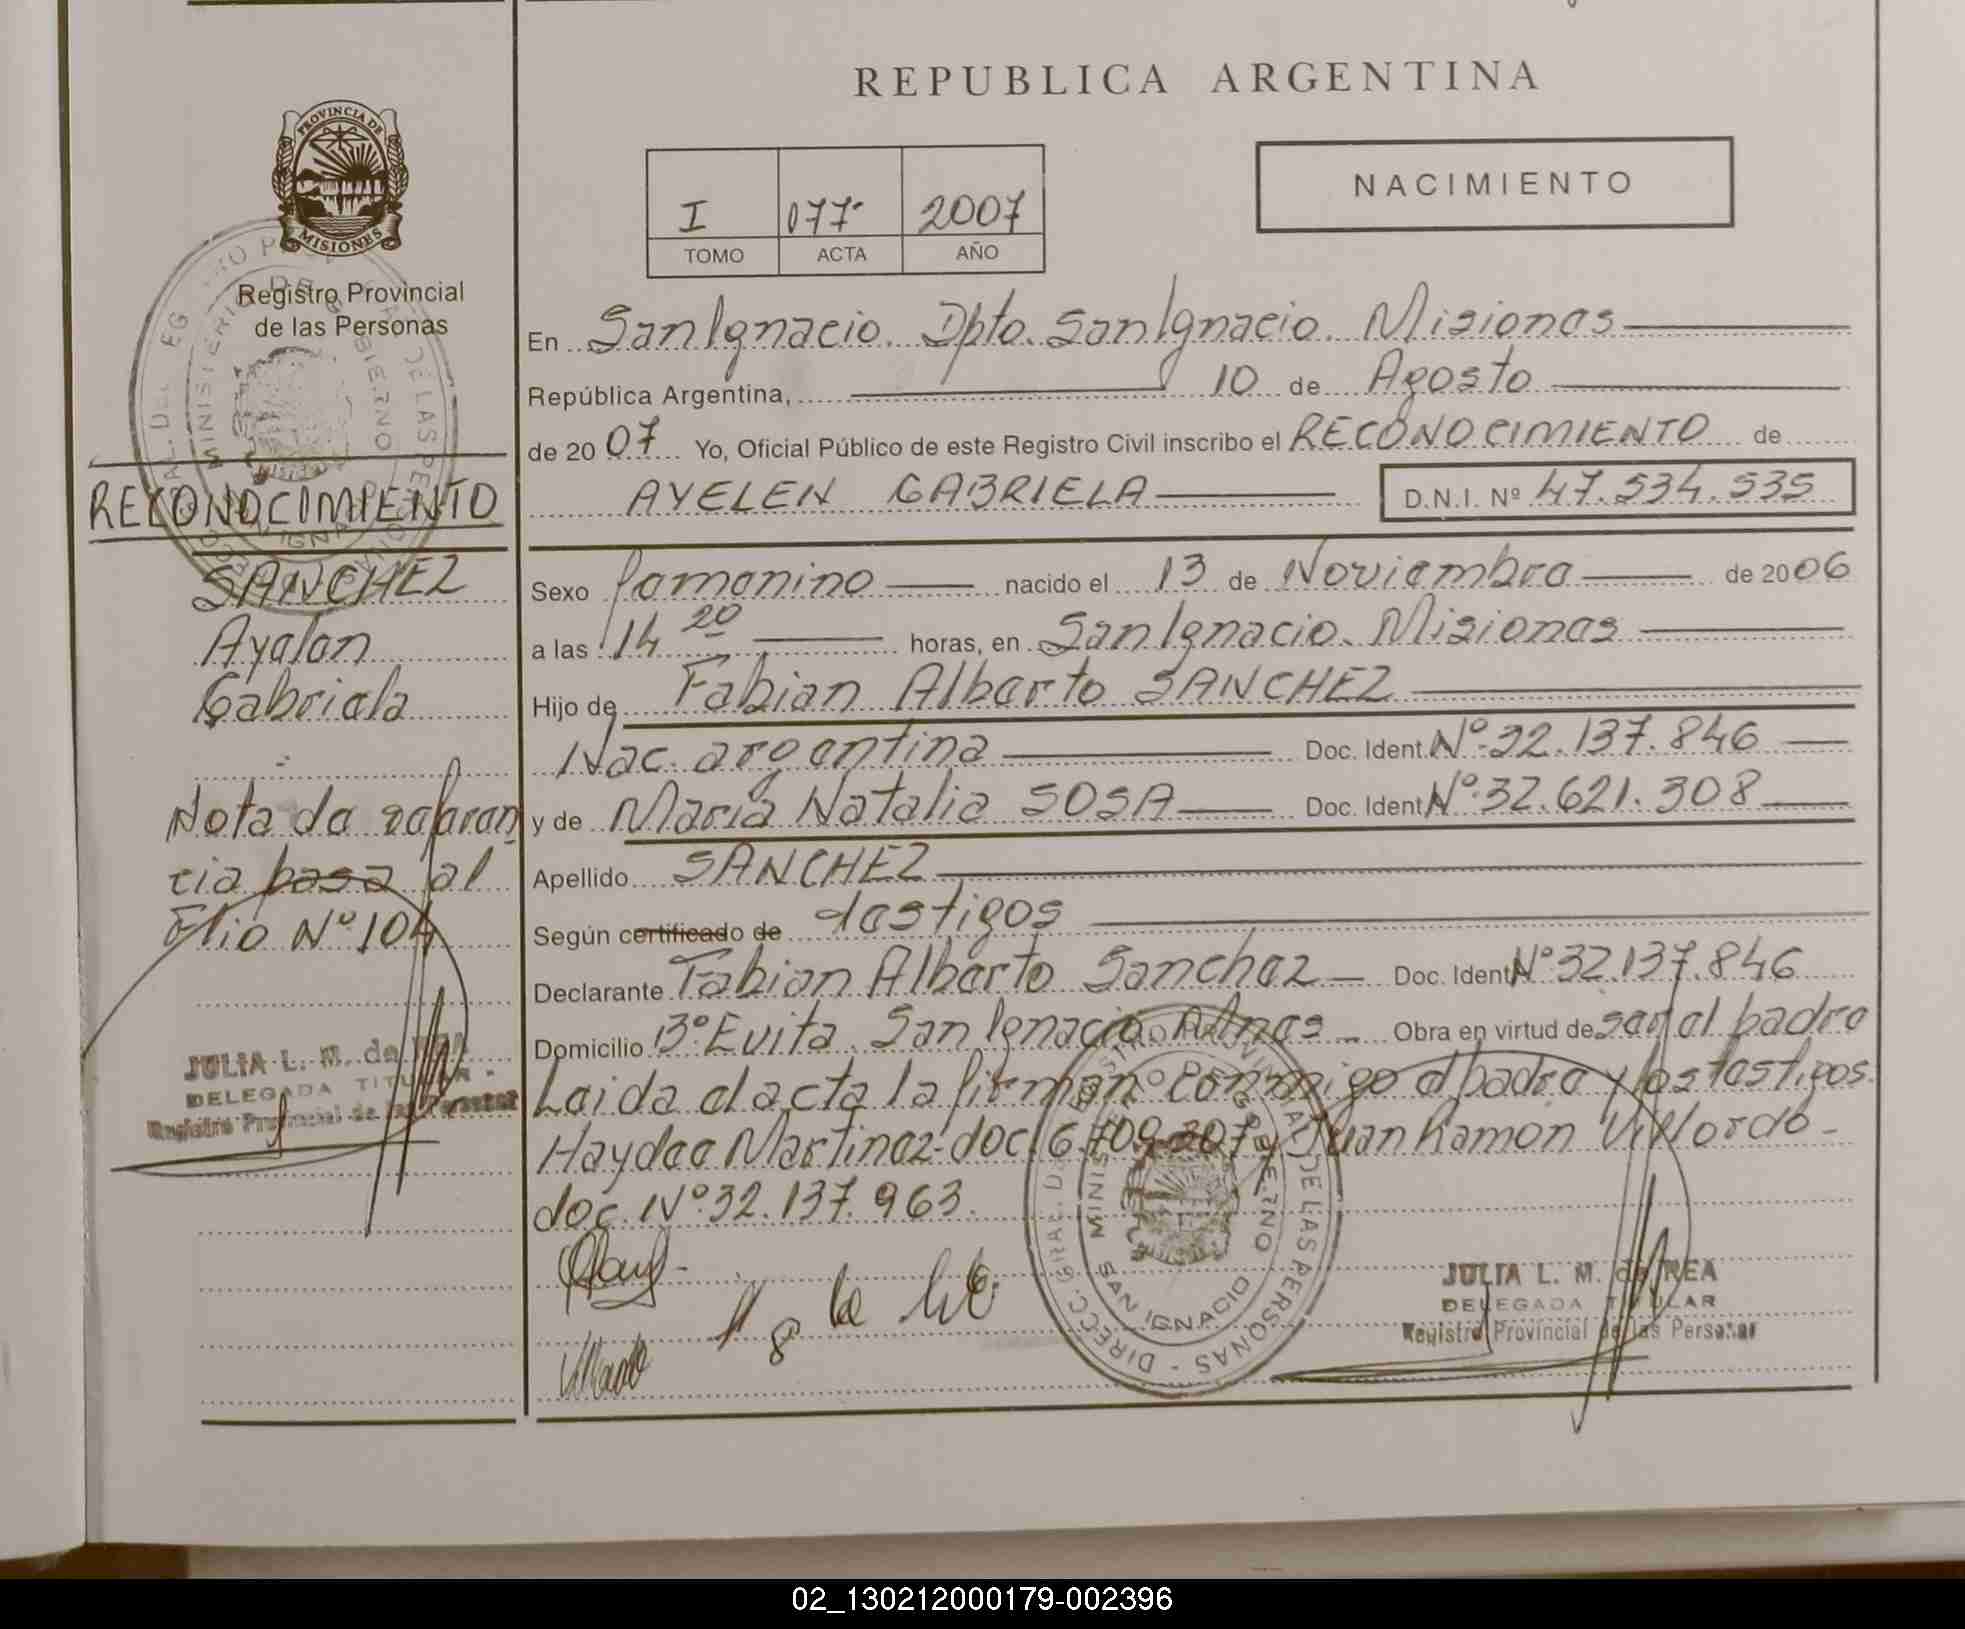 REPUBLICA ARGENTINA
PROVINCIA DE
MISIONES
Registro Provincial
de las Personas
NACIMIENTO
I 077 2007
TOMO ACTA AÑO
En San Ignacio. Dpto. San Ignacio. Misiones
República Argentina, 10 de Agosto
de 2007 Yo, Oficial Público de este Registro Civil inscribo el RECONOCIMIENTO de
AYELEN GABRIELA D.N.I. Nº 47.534.535
Sexo femenino nacido el 13 de Noviembre de 2006
a las 14 20 horas, en San Ignacio. Misiones
Hijo de Fabian Alberto SANCHEZ
Nac. argentina Doc. Ident. Nº 32.137.846
y de Maria Natalia SOSA Doc. Ident. Nº 32.621.308
Apellido SANCHEZ
Según certificado de testigos
Declarante Fabian Alberto Sanchez Doc. Ident. Nº 32.137.846
Domicilio Bº Evita San Ignacio Mnes Obra en virtud de ser el padre
Leida el acta la firman conmigo el padre y los testigos
Haydee Martinez doc. 6.709.307 y Juan Ramon Villordo
doc. Nº 32.137.963.
RECONOCIMIENTO
SANCHEZ
Ayelen
Gabriela
Nota de referen
cia pasa al
Flio Nº 104
JULIA L. M. de REA
DELEGADA TITULAR
Registro Provincial de las Personas
DIRECC. GRAL. DEL REGISTRO PROVINCIAL DE LAS PERSONAS
MINISTERIO DE GOBIERNO
SAN IGNACIO
JULIA L. M. de REA
DELEGADA TITULAR
Registro Provincial de las Personas
02_130212000179-002396